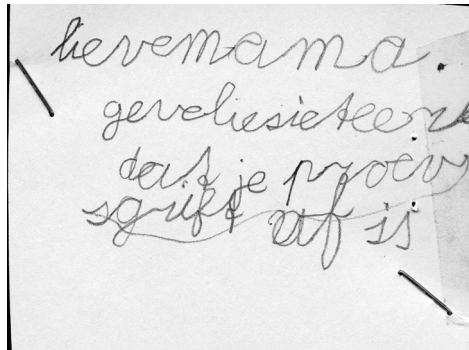 lieve mama.
geveliesieteerd
dat je proev
sgrift af is